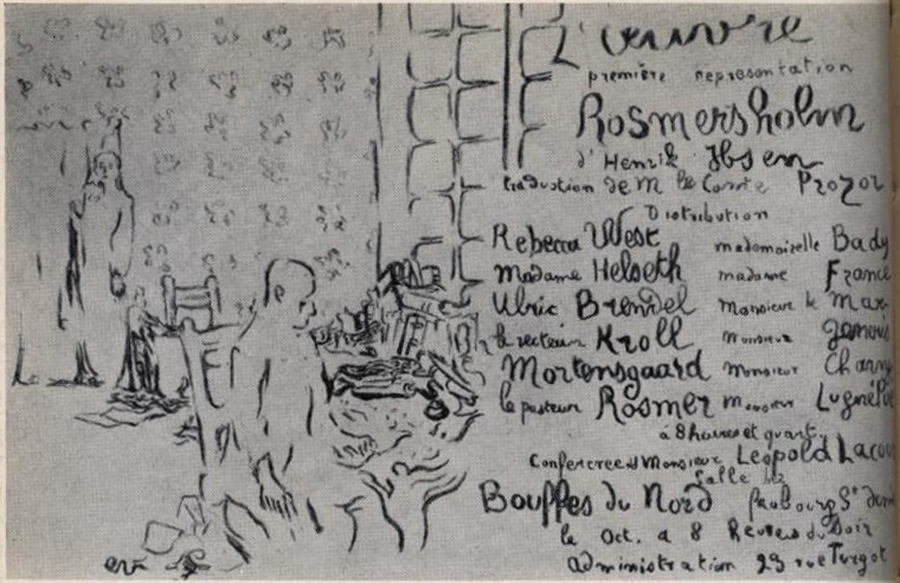 L'œuvre
première representation
Rosmersholm
d'Henrik Ibsen
traduction de M le Comte Prozor
Distribution
Rebecca West mademoiselle Bady
Madame Helseth madame France
Ulric Brendel Monsieur le Mar
le recteur Kroll monsieur
Mortensgaard monsieur Charny
le pasteur Rosmer monsieur Lugné
à 8 heures et quart
Conference de Monsieur Leopold Lacou
salle des
Bouffes du Nord faubourg St deni
le Oct. a 8 Heures du Soir
administration 23 rue Turgot
ev